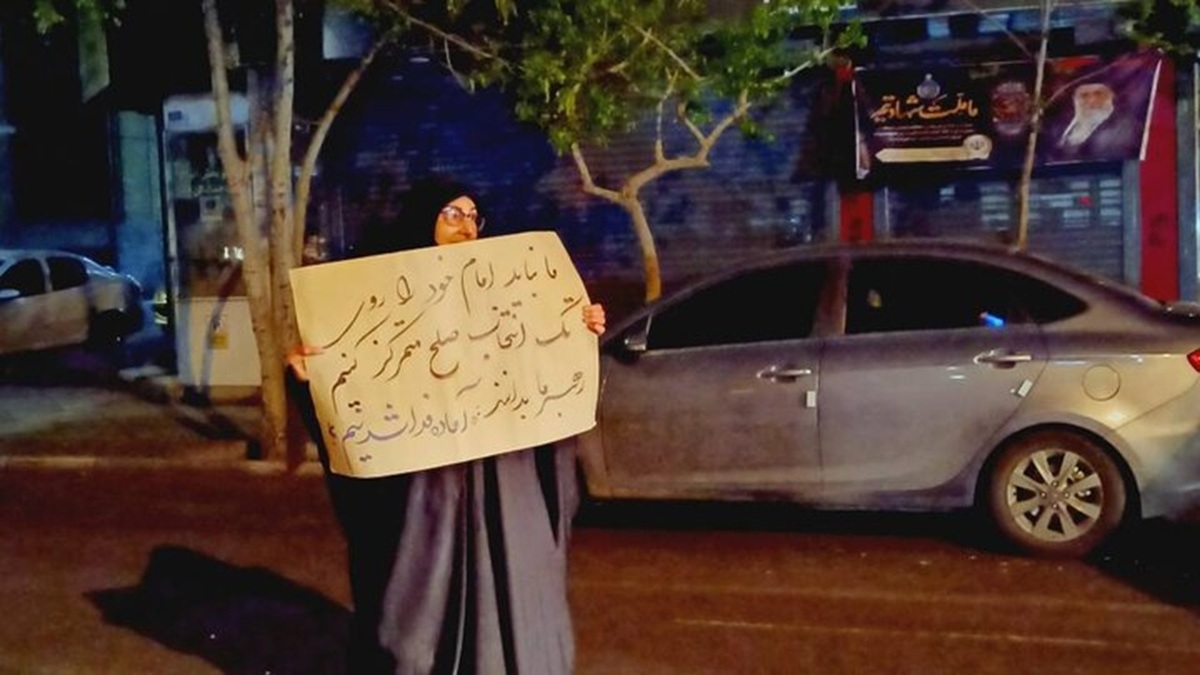 ما نباید امام خود را روی
تک انتخاب صلح متمرکز کنیم
رهبر ما بدانند آماده فدا شدنیم
ما ملت شهادتیم